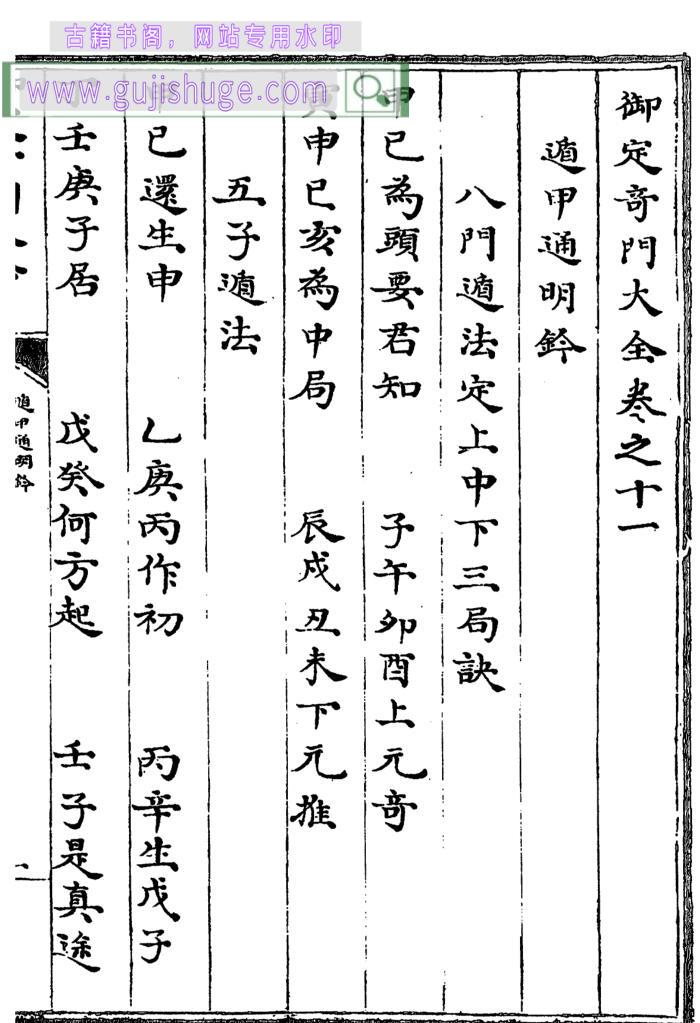 古籍书阁，网站专用水印
www.gujishuge.com
御定奇門大全卷之十一
遁甲通明鈐
八門遁法定上中下三局訣
甲已為頭要君知　子午卯酉上元奇
寅申巳亥為中局　辰戌丑未下元推
五子遁法
甲已還生甲　乙庚丙作初　丙辛生戊子
丁壬庚子居　戊癸何方起　壬子是真途
遁甲通明鈐
一